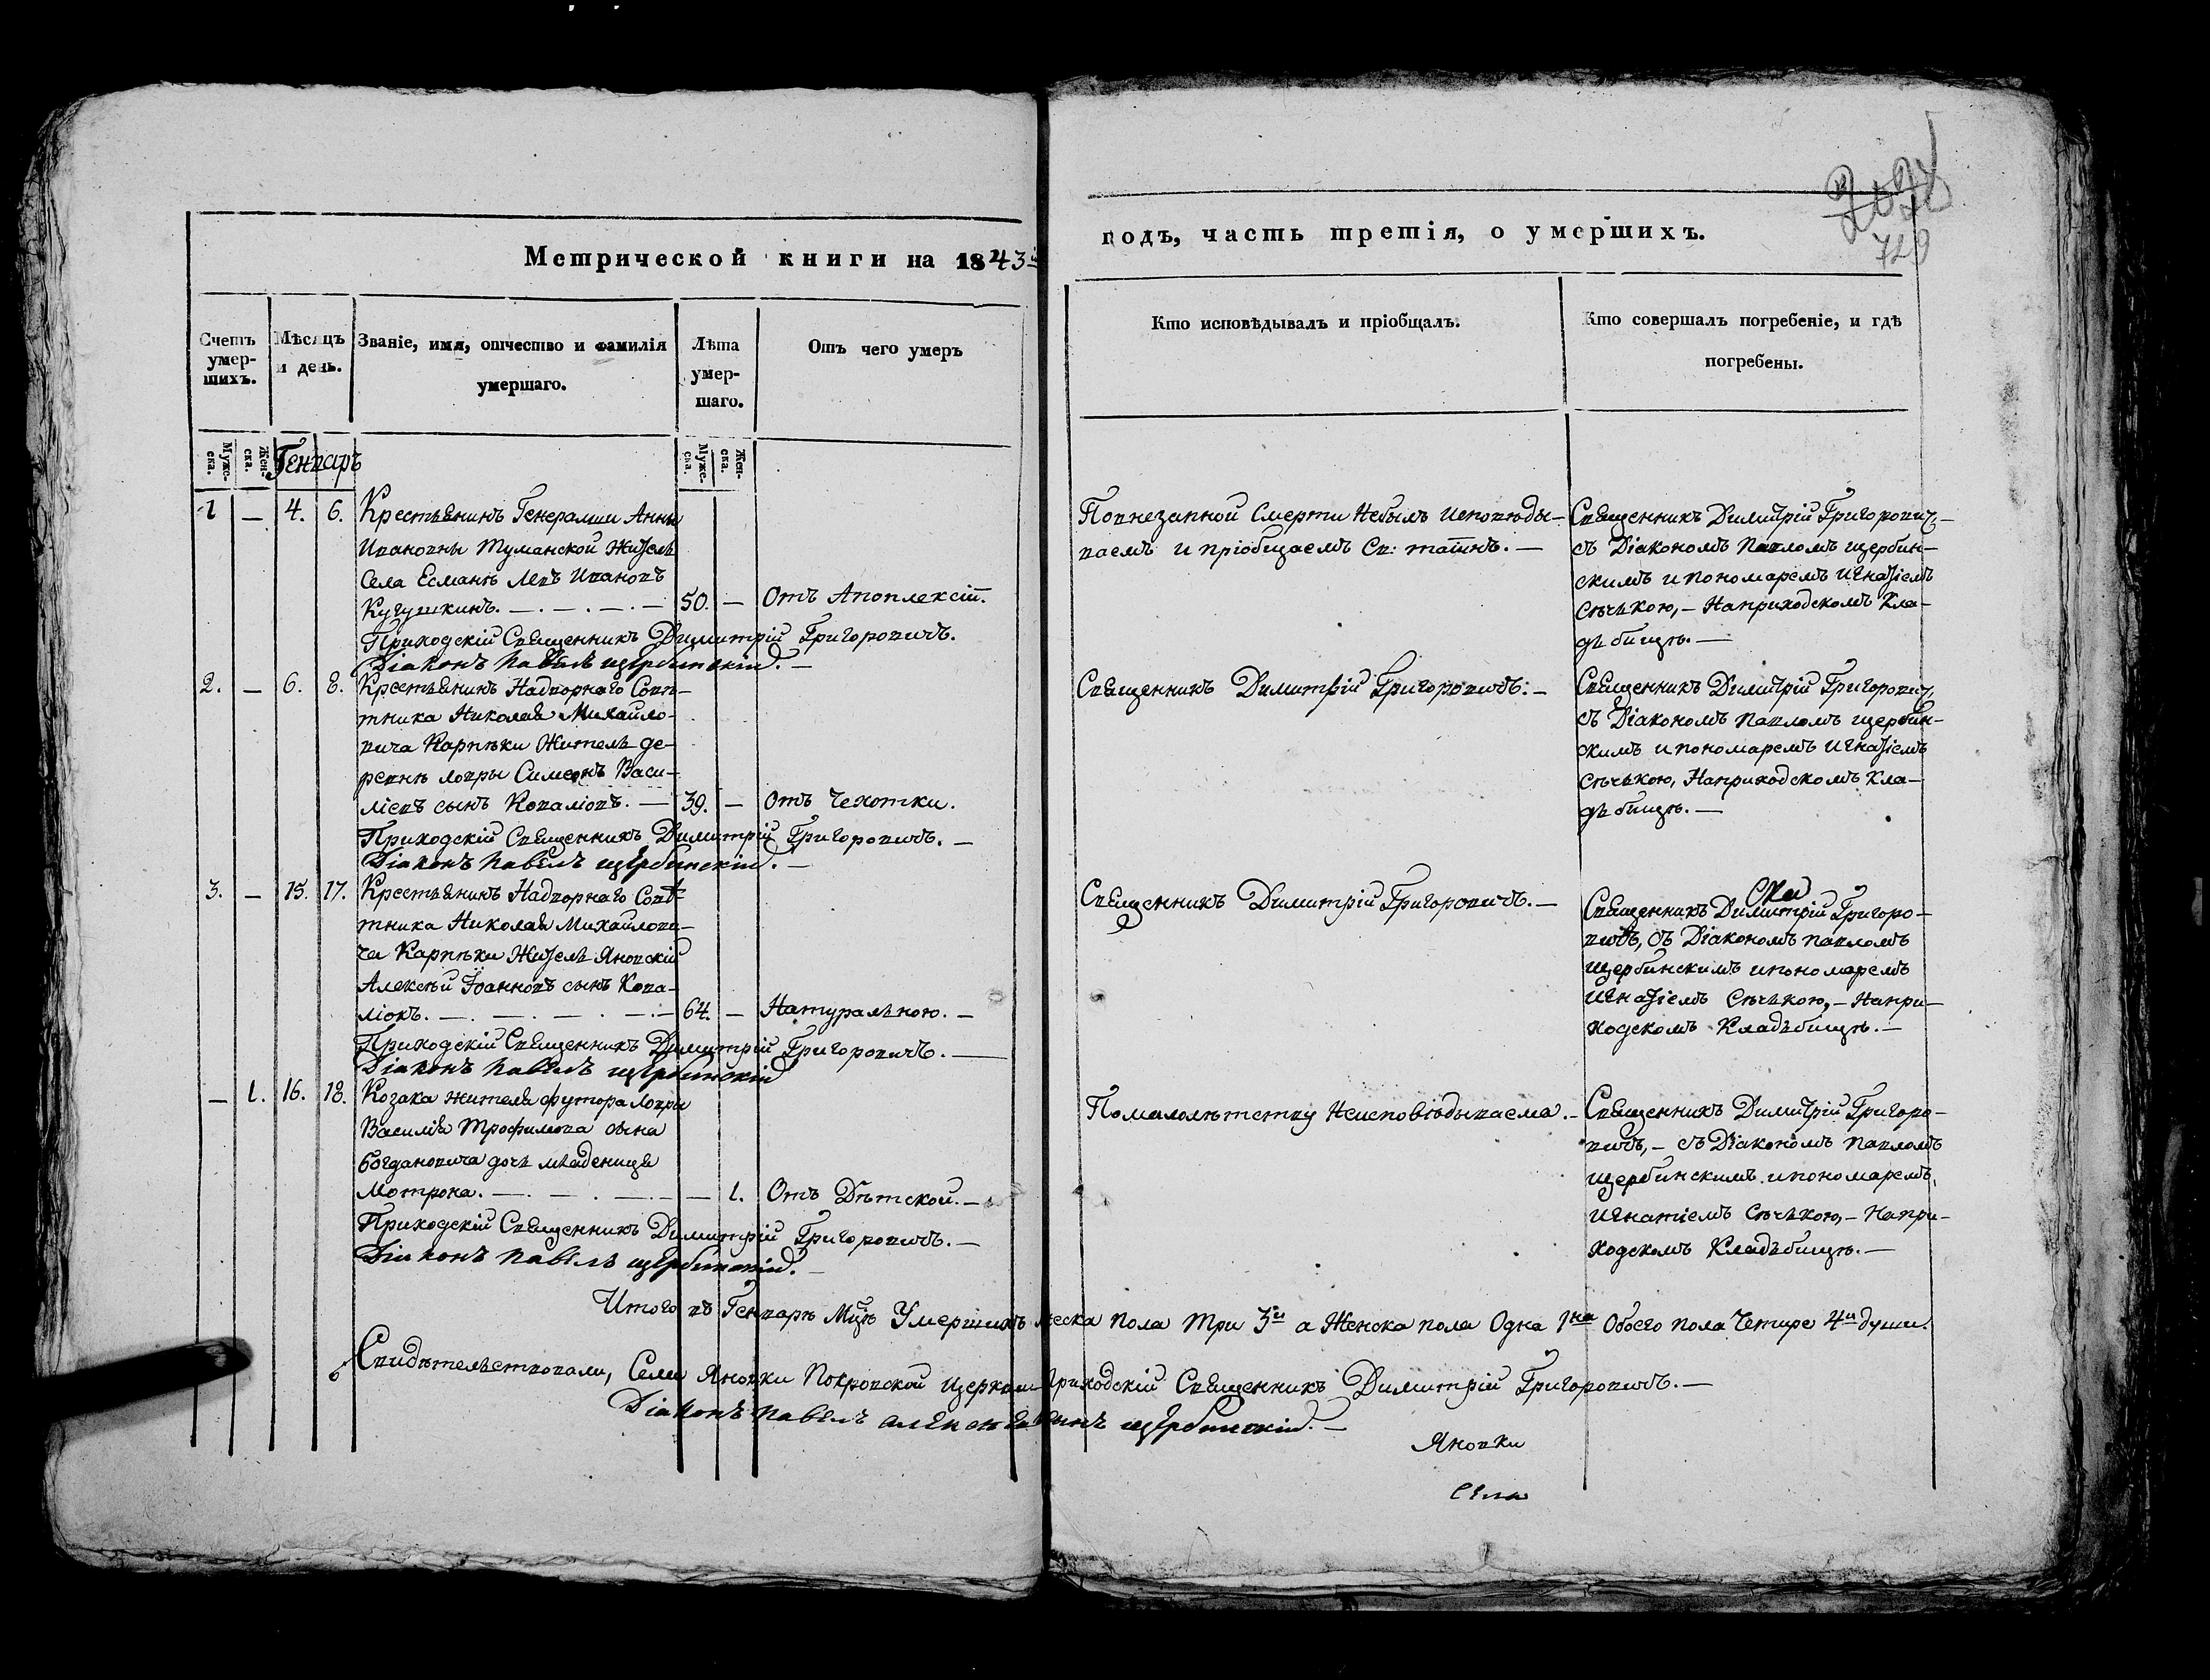 Метрической книги на 1843й
годъ, часть третія, о умершихъ.
729
Счетъ умер-
шихъ.
Мѣсяцъ
и день.
Званіе, имя, отчество и фамилія
умершаго.
Лѣта
умер-
шаго.
Отъ чего умеръ
Кто исповѣдывалъ и пріобщалъ.
Кто совершалъ погребеніе, и гдѣ
погребены.
Муже-
ска.
Жен-
ска.
Генваръ
Муже-
ска.
Жен-
ска.
1 — 4. 6. Крестьянинъ Генеральши Анны
Ивановны Туманской Житель
Села Есмань Левъ Ивановъ
Кугушкинъ. — 50. — Отъ Апоплексіи.
Приходскій Священникъ Димитрій Григоровичъ.
Діаконъ Павелъ Щербинскій. —
Повнезапной Смерти Небылъ исповѣды-
ваемъ и пріобщаемъ Св: таинъ. —
Священникъ Димитрій Григорович, —
съ Діакономъ Павломъ Щербин-
скимъ и пономаремъ Игнатіемъ
Сѣчькою, — Наприходскомъ Кла-
дьбищѣ. —
2. — 6. 8. Крестьянинъ Надворнаго Совѣ-
тника Николая Михайло-
вича Карпѣки Житель де-
ревнѣ Ловры Симеонъ Васи-
ліевъ сынъ Коваліовъ. — 39. — Отъ Чехотки.
Приходскій Священникъ Димитрій Григоровичъ. —
Діаконъ Павелъ Щербинскій. —
Священникъ Димитрій Григоровичъ. —
Священникъ Димитрій Григорович,
съ Діакономъ Павломъ Щербин-
скимъ и пономаремъ Игнатіемъ
Сѣчькою, Наприходскомъ Кла-
дьбищѣ. —
3. — 15. 17. Крестьянинъ Надворнаго Совѣ-
тника Николая Михайлови-
ча Карпѣки Житель Яновскій
Алексѣй Іоанновъ сынъ Кова-
ліокъ. — 64. — Натуральною. —
Приходскій Священникъ Димитрій Григоровичъ. —
Діаконъ Павелъ Щербинскій
Священникъ Димитрій Григоровичъ. —
Священникъ Димитрій Григоро-
вичъ, съ Діакономъ Павломъ
Щербинскимъ ипономаремъ
Игнатіемъ Сѣчькою, — Напри-
ходскомъ Кладьбищѣ. —
— 1. 16. 18. Козака жителя футора Ловры
Василія Трофимова сына
Богдановича дочь младеница
Мотрона. — — 1. Отъ Дѣтской. —
Приходскій Священникъ Димитрій Григоровичъ. —
Діаконъ Павелъ Щербинскій. —
Помалолѣтству Неисповѣдываема. —
Священникъ Димитрій Григоро-
вичъ, — съ Діакономъ Павломъ
Щербинскимъ ипономаремъ,
Игнатіемъ Сѣчькою, — Напри-
ходскомъ Кладьбищѣ. —
Итого въ Генварѣ Мцѣ Умершихъ Меска пола Три 3и а Женска пола Одна 1на Обоего пола Четире 4и души.
Свидѣтельствовали, Села Яновки Покровской Церкви Приходскій Священникъ Димитрій Григоровичъ. —
Діаконъ Павелъ Алексѣевъ сынъ Щербинскій. —
Яновки
Села